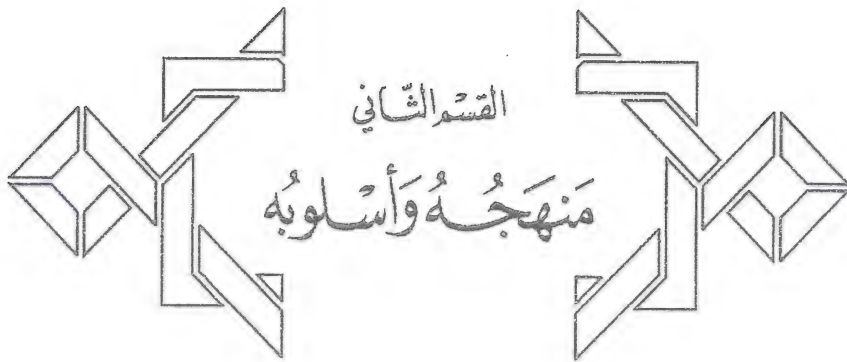 القسْم الثّاني
مَنهَجُهُ وَأسْلوبُه